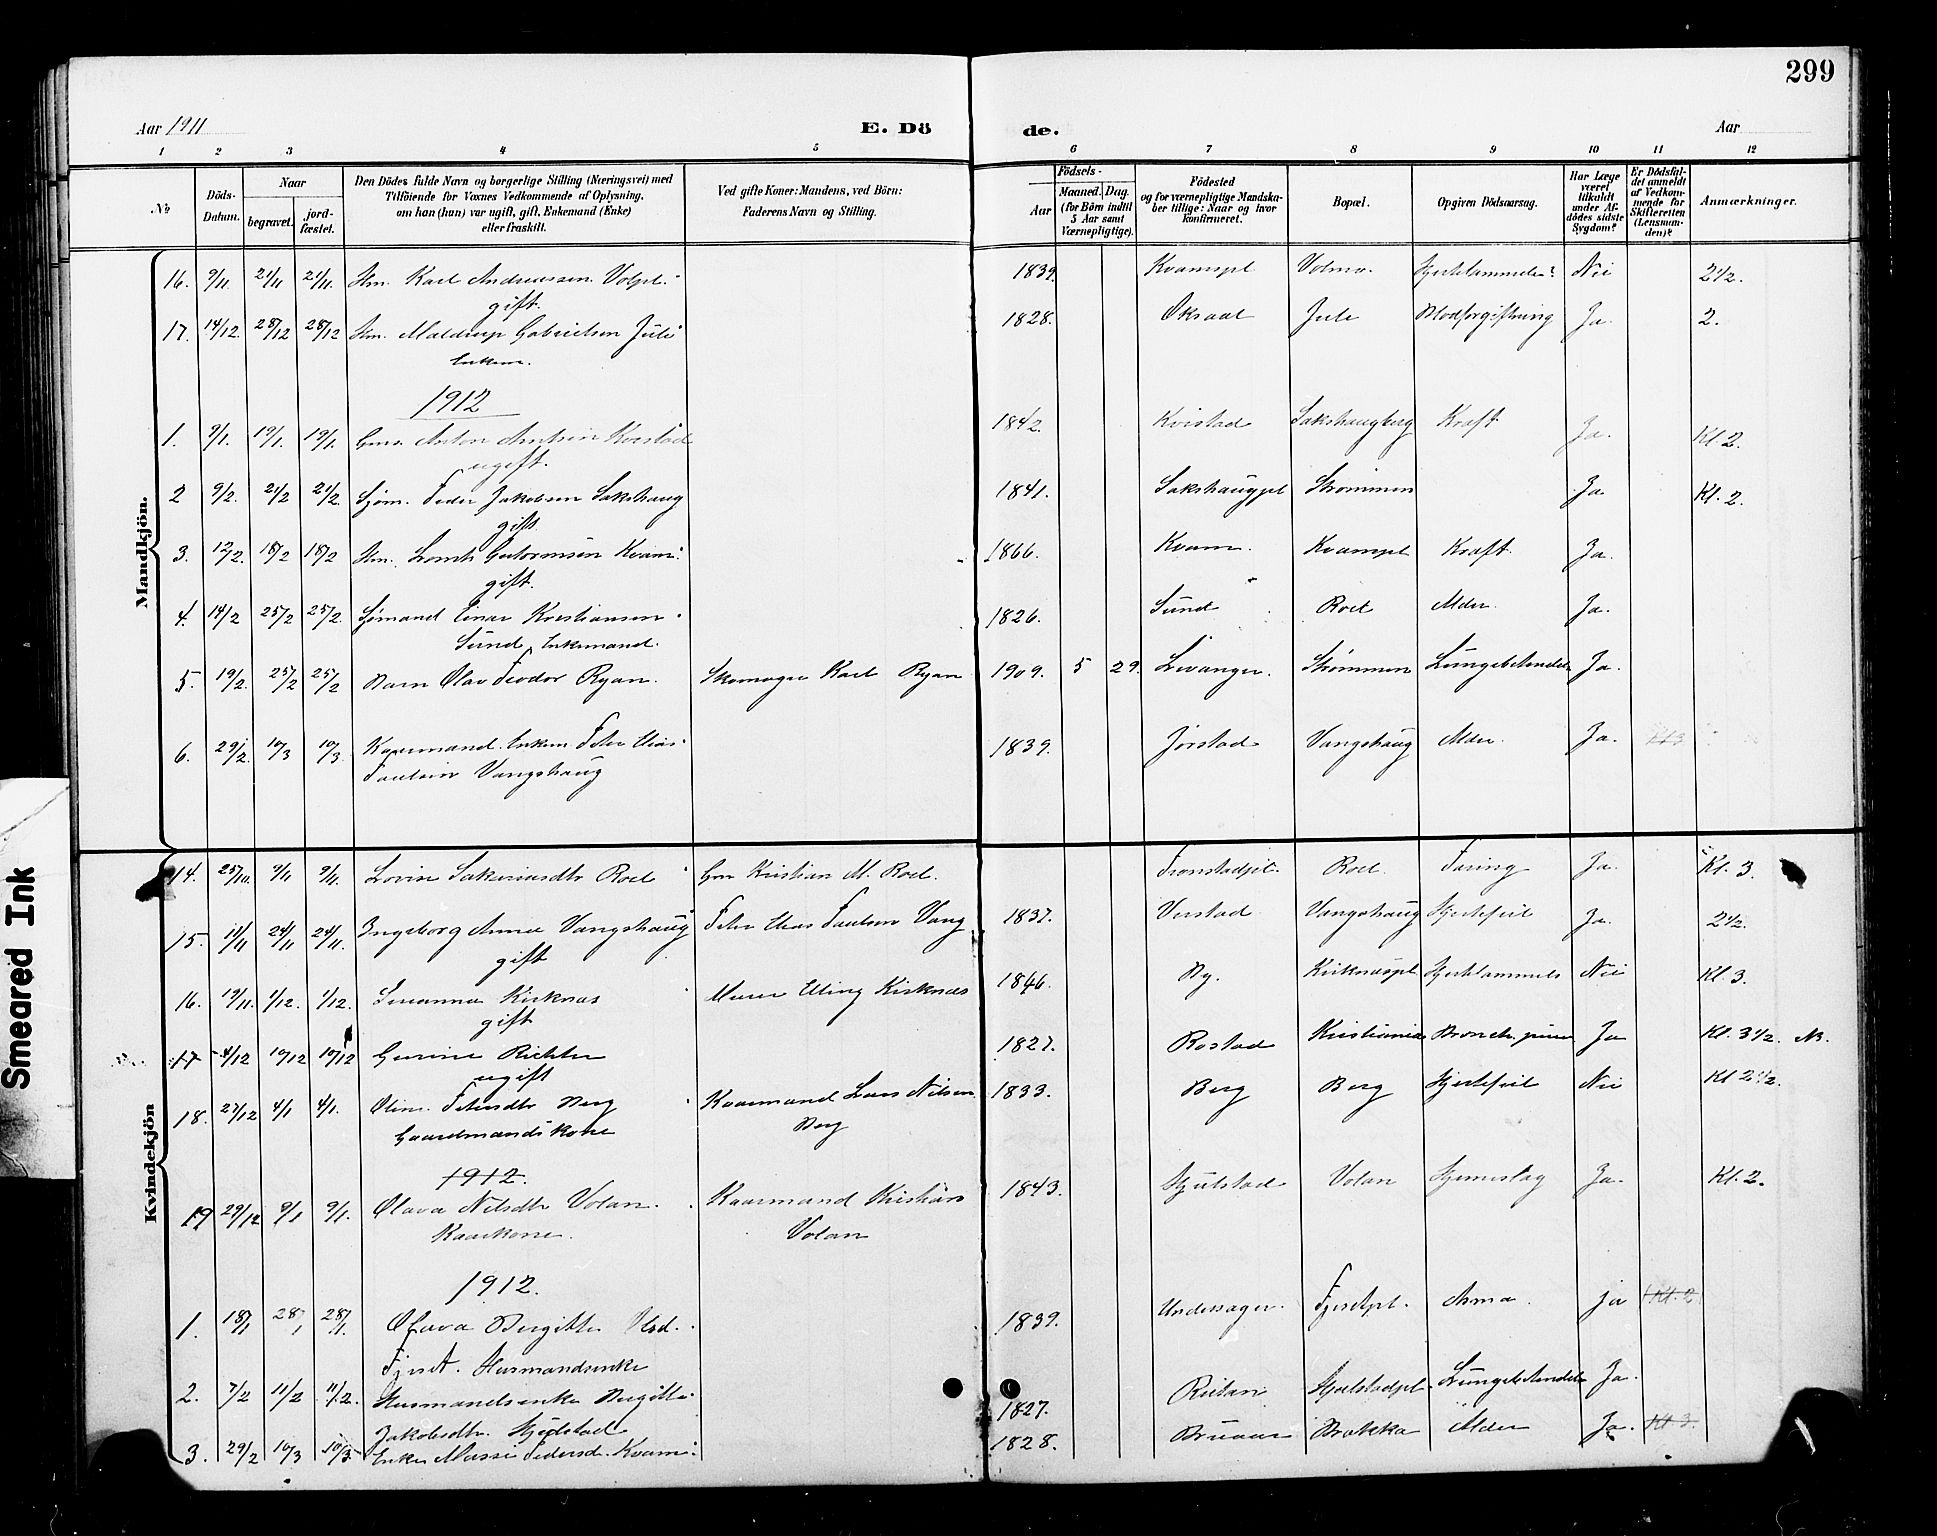 299
Aar 1911 E. Dö de. Aar
1 2 3 4 5 6 7 8 9 10 11 12
№
Döds-Datum.
Naar
begravet.
jord-fæstet.
Den Dödes fulde Navn og borgerlige Stilling (Næringsvei) med
Tilföiende for Voxnes Vedkommende af Oplysning,
om han (hun) var ugift, gift, Enkemand (Enke)
eller fraskilt.
Ved gifte Koner: Mandens, ved Börn:
Faderens Navn og Stilling.
Födsels-
Aar
Maaned. Dag.
(for Börn indtil
5 Aar samt
Værnepligtige).
Födested
og for værnepligtige Mandska-
ber tillige: Naar og hvor
Konfirmeret.
Bopæl.
Opgiven Dödsaarsag.
Har Læge
været
tilkaldt
under Af-
dödes sidste
Sygdom?
Er Dödsfal-
det anmeldt
af Vedkom-
mende for
Skifteretten
(Lensman-
den)?
Anmærkninger.
Mandkjön.
16. 9/11 21/11 21/11. Hm. Karl Andreassen Volpl. 1839. Kvamspl Nei 2 1/2.
gift.
17. 14/12. 28/12 28/12 Gabrielsen Jule 1828. Jule Blodforgiftning Ja. 2.
Enkem.
1912
1. 9/1. 19/1. 19/1. Anton Kvistad 1842. Kvistad Sakshaugberg Kræft Ja. Kl. 2.
ugift.
2 9/2. 21/2 21/2. Sjøm. Peder Jakobsen Sakshaug 1841. Sakshaugpl Strømmen Ja Kl. 2.
gift.
3. 12/2. 18/2 18/2 Hm. Kvam 1866. Kvam. Kvampl Kræft. Ja.
gift.
4. 14/2 25/2 25/2. Sjømand Einar Kristiansen 1826. Sund Roel Alder. Ja.
Sund, Enkemand.
5. 19/2. 25/2 25/2 Barn Olav Teodor Ryan. Skomager Karl Ryan 1909. 5 29. Levanger. Strømmen Lungebetændelse Ja.
6. 29/2. 10/3 10/3. Kaarmand. Enkem. Peter Elias 1839. Jørstad Vangshaug Alder. Ja.
Paulsen Vangshaug
Kvindekjön
14. 25/10. 9/11 9/11. Lovise Sakariasdtr Roel Gm Kristian M. Roel. Tronstadpl. Roel. Tæring Ja. Kl. 3.
15. 11/11 24/11 24/11. Ingeborg Anna Vangshaug Peter Elias Paulsen Vang 1837. Verstad Vangshaug Hjertefeil Ja. 2 1/2.
gift
16. 19/11. 1/12. 1/12. Susanna Kirknæs Murer Elling Kirknæs 1846. By. Kirknæspl Hjertelammels Nei Kl. 3.
gift
17 4/12 19/12 19/12 Gurine Richter 1827. Rostad Kristiania Ja Kl. 3 1/2.
ugift
18. 27/12 4/1 4/1. Petersdtr Berg Kaarmand Lars Nilsen 1833. Berg Berg Hjertefeil Nei Kl 2 1/2.
Gaardmandskone Berg
1912.
19 29/12 9/1 9/1. Olava Nilsdtr Volan. Kaarmand Kristian 1843. Hjulstad Volan Hjerneslag Ja. Kl. 2.
Kaarkone. Volan
1912.
1. 18/1 28/1 28/1. Olava Bergitte Olsd. 1839. Undersager. Fjesetpl. Astma. ja Kl. 2
Fjeset. Husmandsenke
2. 7/2 11/2 11/2. Husmandsenke Bergitte 1827. Reitan Hjelstadpl. Lungebetændelse Ja.
Jakobsdtr. Hjelstad
3. 29/2 10/3 10/3 Enke Massi Pedersd. Kvam 1828. Bruaas Brakka Alder Ja. Kl 3.
Smeared Ink